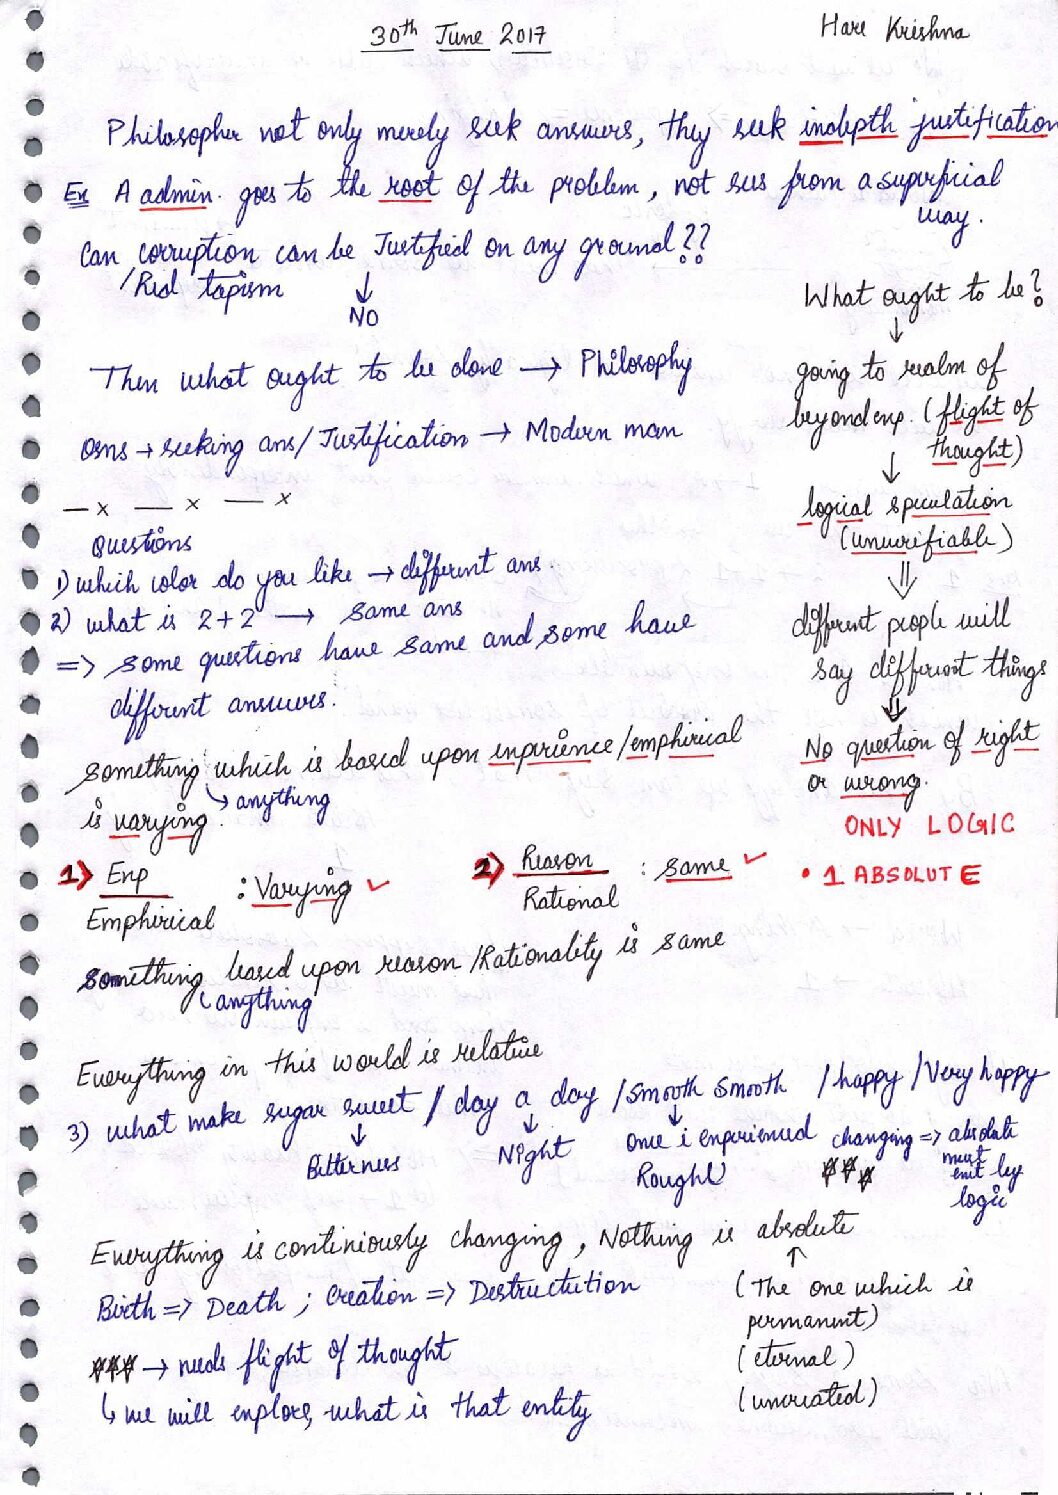 30th June 2017
Hare Krishna
Philosopher not only merely seek answers, they seek indepth justification
Ex A admin. goes to the root of the problem, not sees from a superficial
way.
Can corruption can be Justified on any ground??
/Red tapism
↓
NO
Then what ought to be done → Philosophy
Qsns → seeking ans/Justification → Modern man
— x — x — x
What ought to be?
↓
going to realm of
beyond exp. (flight of
thought)
↓
logical speculation
(unverifiable)
⇓
different people will
say different things
⇓
No question of right
or wrong.
ONLY LOGIC
• 1 ABSOLUTE
Questions
1) which color do you like → different ans.
2) what is 2+2 → same ans
=> some questions have same and some have
different answers.
something which is based upon experience/emphirical
↳ anything
is varying.
1) Exp : Varying ✓
Emphirical
2) Reason : same ✓
Rational
something based upon reason/Rationality is same
↳ anything
Everything in this world is relative
3) what make sugar sweet / day a day / smooth smooth / happy / Very happy
↓ Bitterness
↓ Night
↓ once i experienced
Rough
changing => absolute
must
exist by
logic
Everything is continiously changing, Nothing is absolute
↑
Birth => Death ; Creation => Destructution
(The one which is
permanent)
(eternal)
(uncreated)
→ needs flight of thought
↳ we will explore, what is that entity